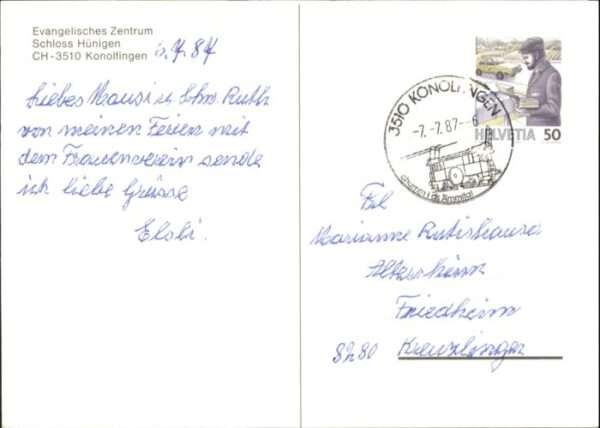 Evangelisches Zentrum
Schloss Hünigen
CH-3510 Konolfingen
6.7.87
Liebes Mausi u. Schw. Ruth
von meinen Ferien mit
dem Frauenverein sende
ich liebe Grüsse
3510 KONOLFINGEN
-7.-7.87-6
HELVETIA 50
Frl
Marianne Rutishauser
Altersheim
Friedheim
8280 Kreuzlingen